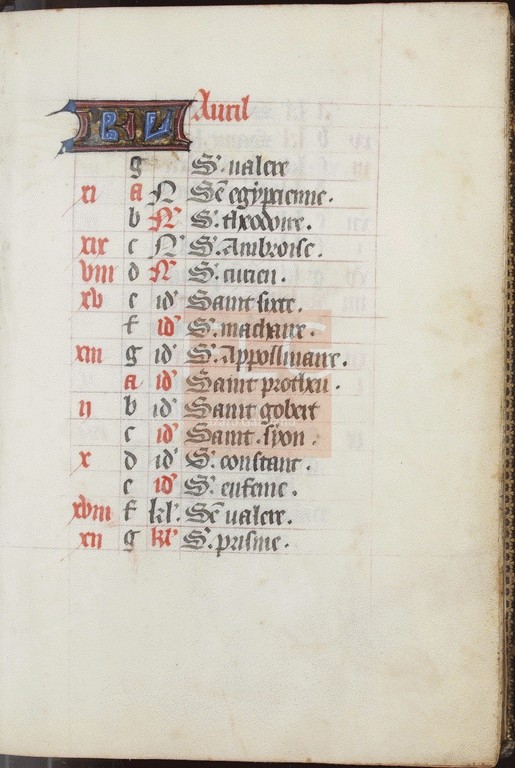 KL Auril
g S'. ualere
xi a N Sē egypcienne.
b N' S'. theodore.
xix c N' S'. Ambroise.
viii d N' S'. eucien.
xv e id' Saint sixte.
f id' S'. machaire.
xiii g id' S'. Appollinaire.
a id' Saint protheu.
ii b id' Saint gobert
c id' Saint. syon.
x d id' S'. constant.
e id' S'. eufeme.
xviii f kl'. Sē ualere.
xii g kl' S'. prisme.